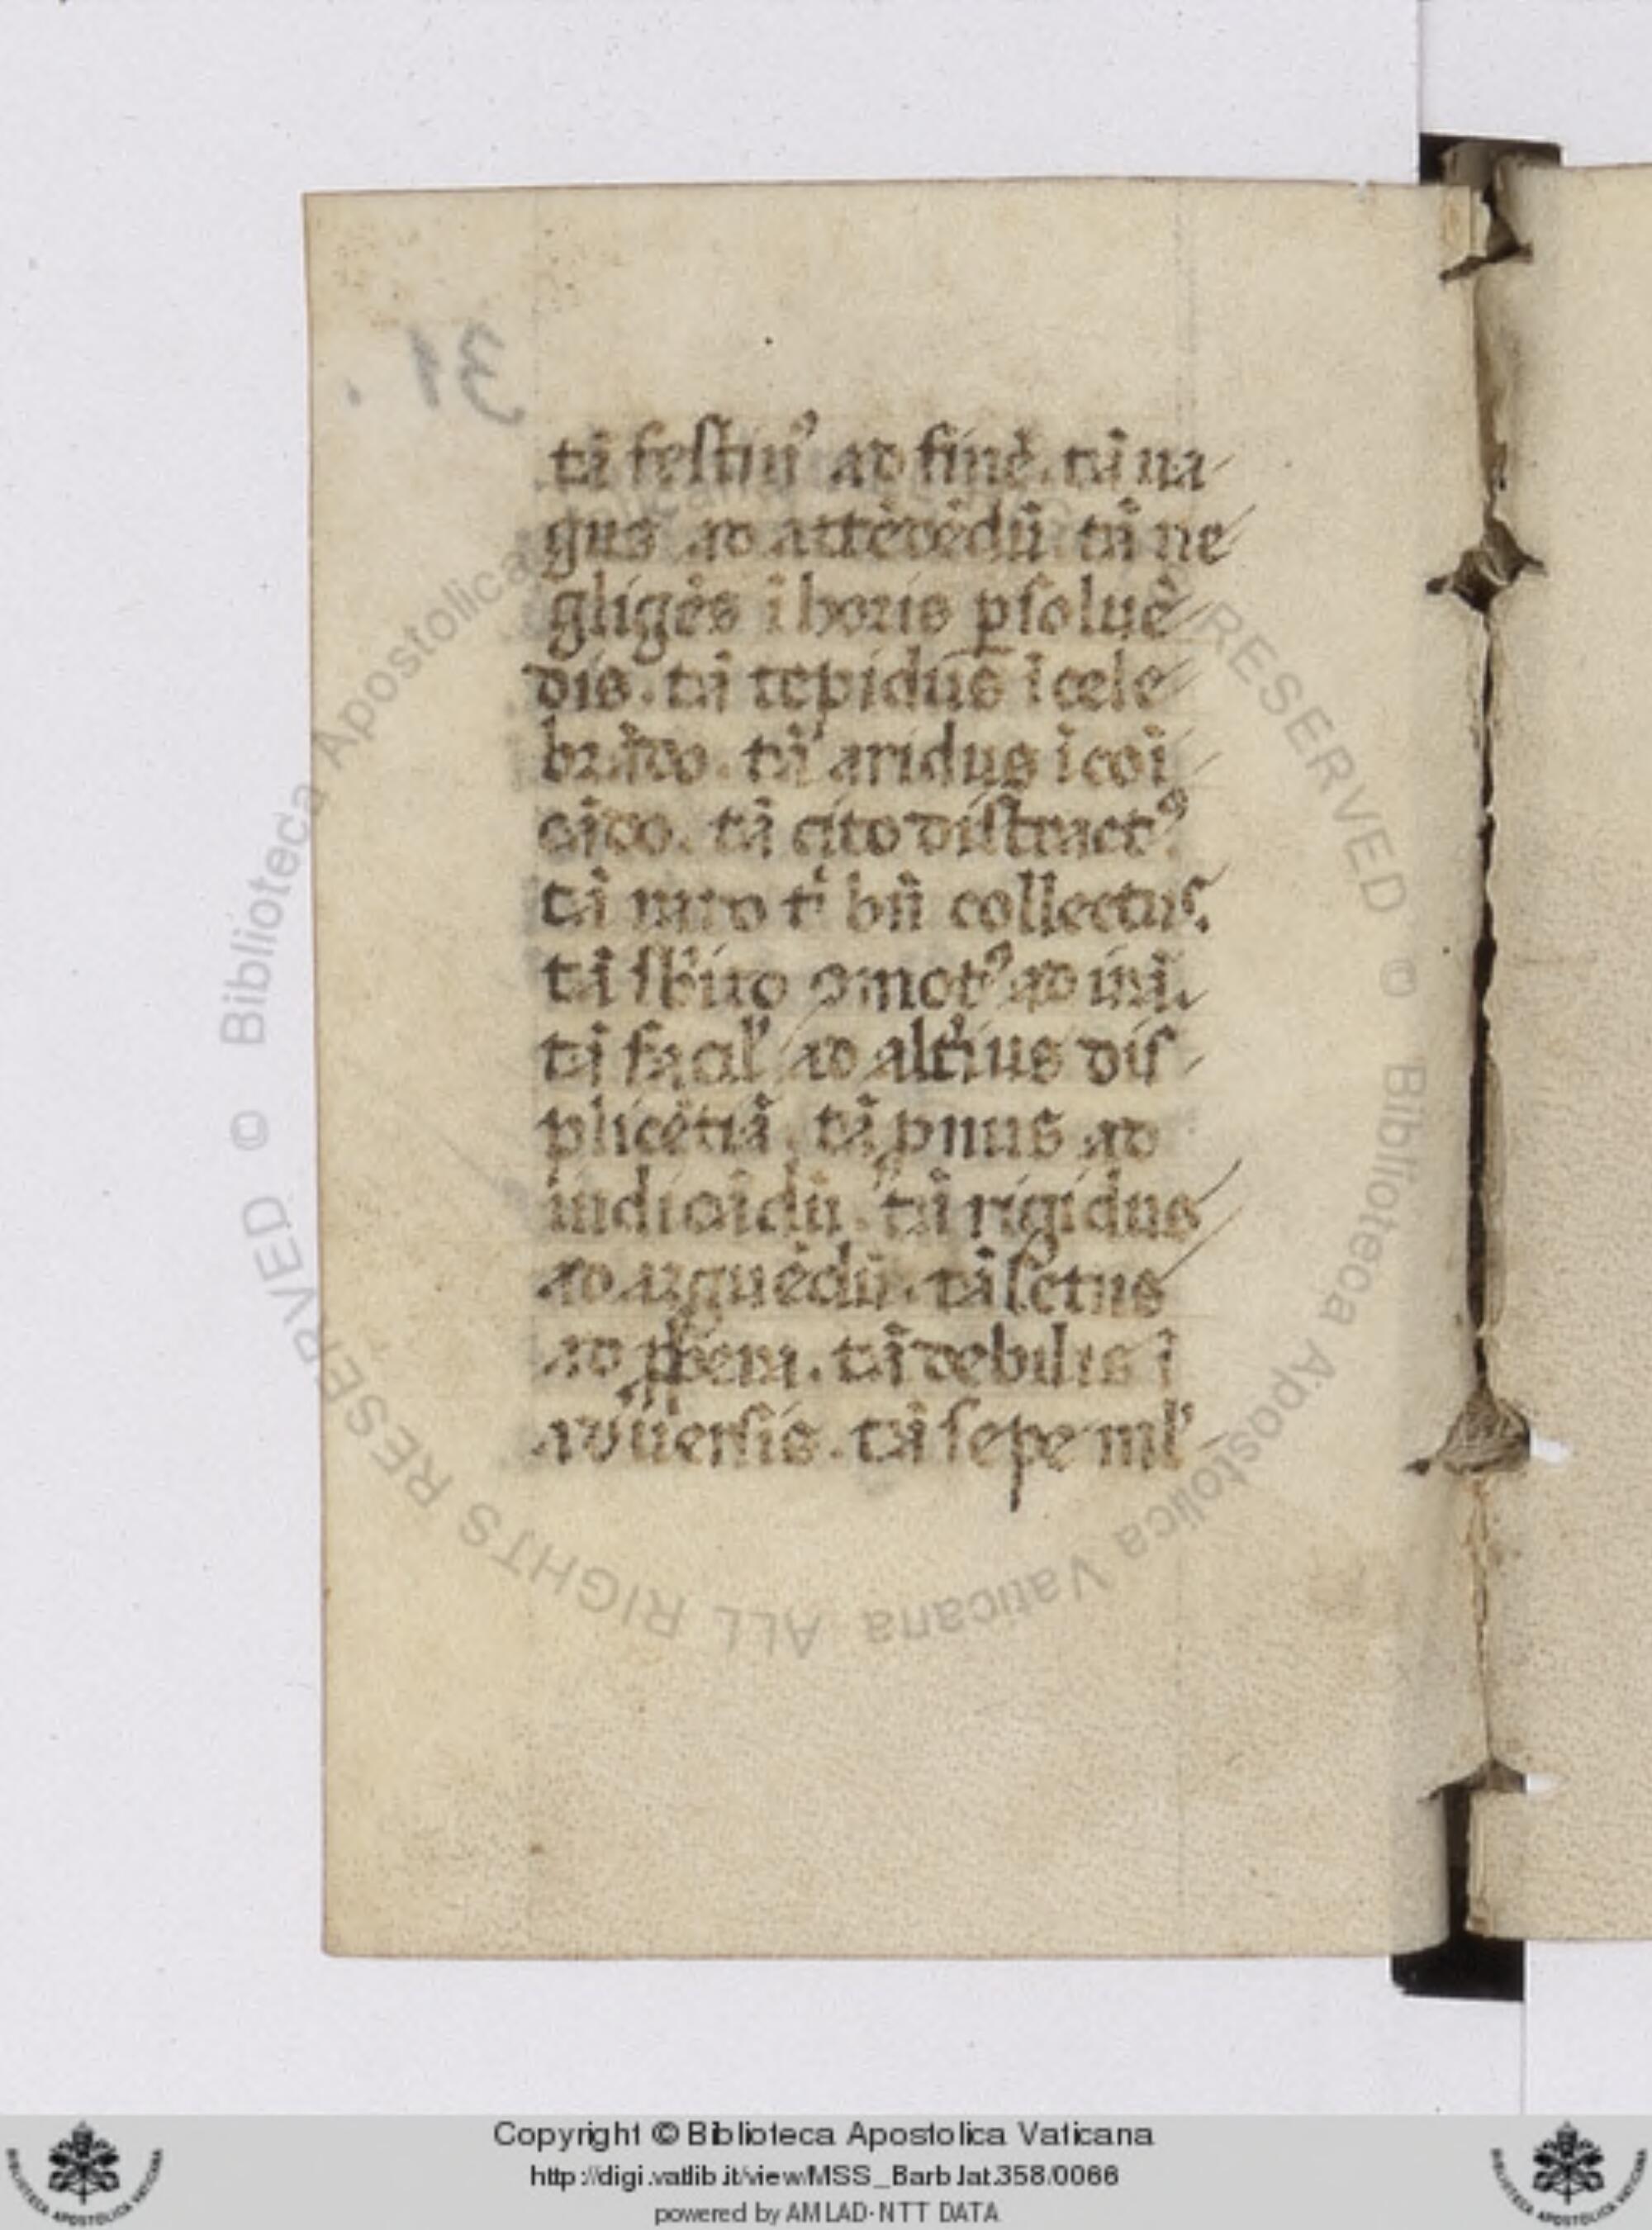 31.
tā festinꝰ ad finē. tā ua
gus ad attēdēdū. tā ne
gligēs ī horis ꝑsoluē
dis. tā tepidus ī cele
brādo. tā aridus ī cōi
cādo. tā cito distractꝰ.
tā raro tͥ bn̄ collectus.
tā sb̓ito ꝯmotꝰ ad irā.
tā facil̓ ad alt̓ius dis
plicētiā. tā pnus ad
iudicādū. tā rigidus
ad arguēdū. tā letus
ad ꝓspera. tā debilis ī
aduersis. tā sepe ml̓
© Biblioteca Apostolica Vaticana ALL RIGHTS RESERVED
Copyright © Biblioteca Apostolica Vaticana
http://digi.vatlib.it/view/MSS_Barb.lat.358/0066
powered by AMLAD-NTT DATA
BIBLIOTECA APOSTOLICA VATICANA
BIBLIOTECA APOSTOLICA VATICANA